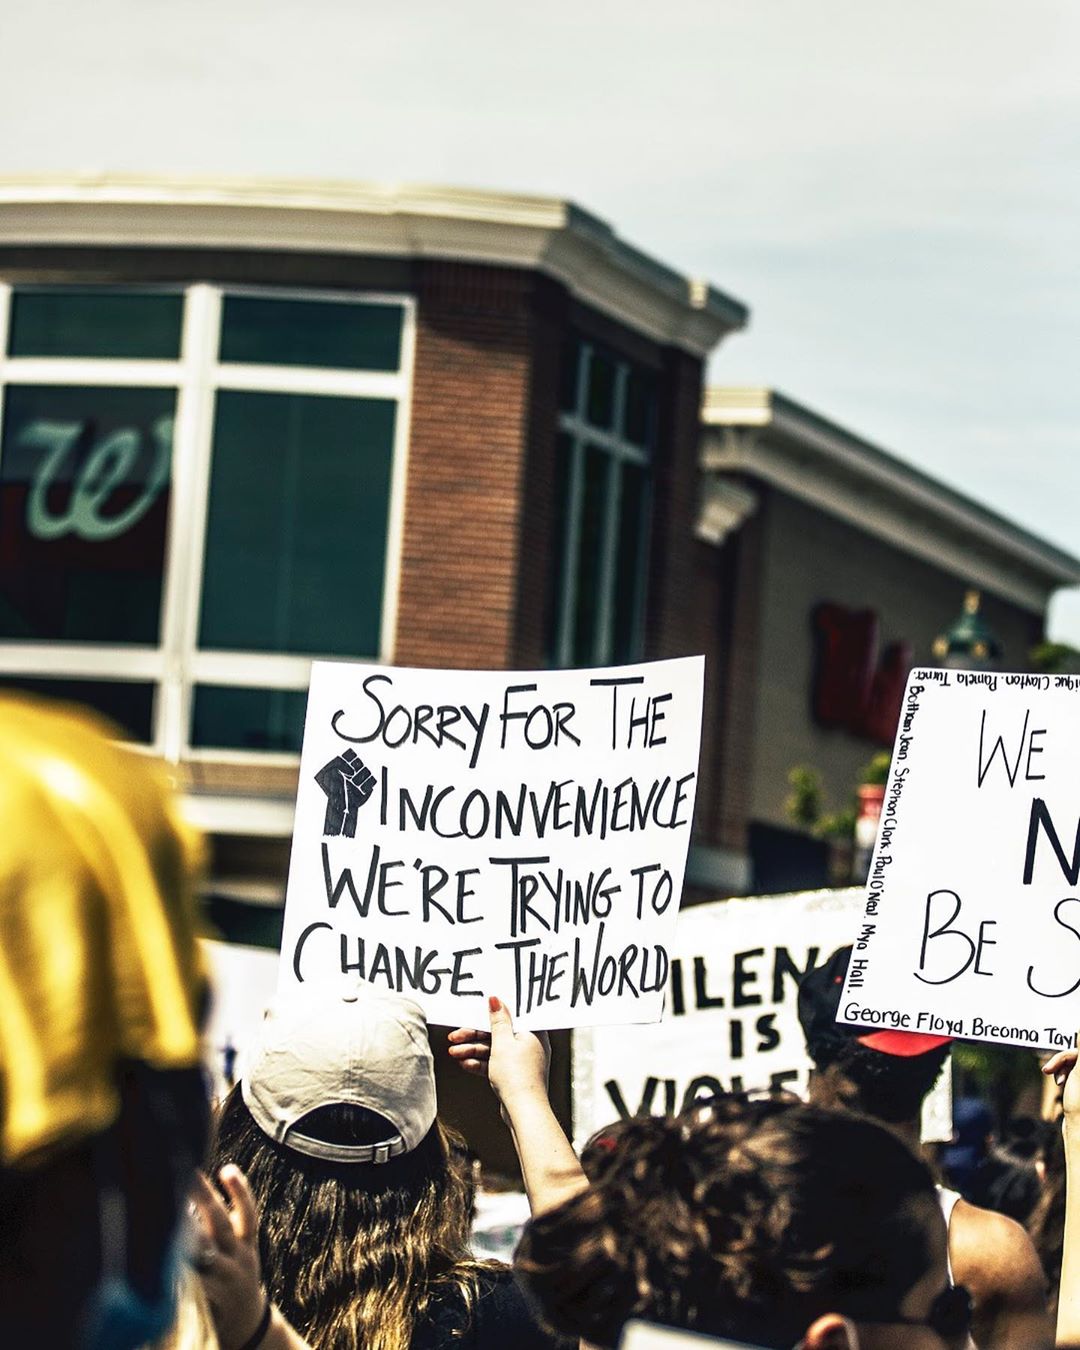 SORRY FOR THE
INCONVENIENCE
WE'RE TRYING TO
CHANGE THE WORLD
ILEN
IS
VIOLE
WE
N
BE S
Pamela Turner.
Botham Jean. Stephon Clark. Paul O'Neal. Mya Hall.
George Floyd. Breonna Tayl
W
W